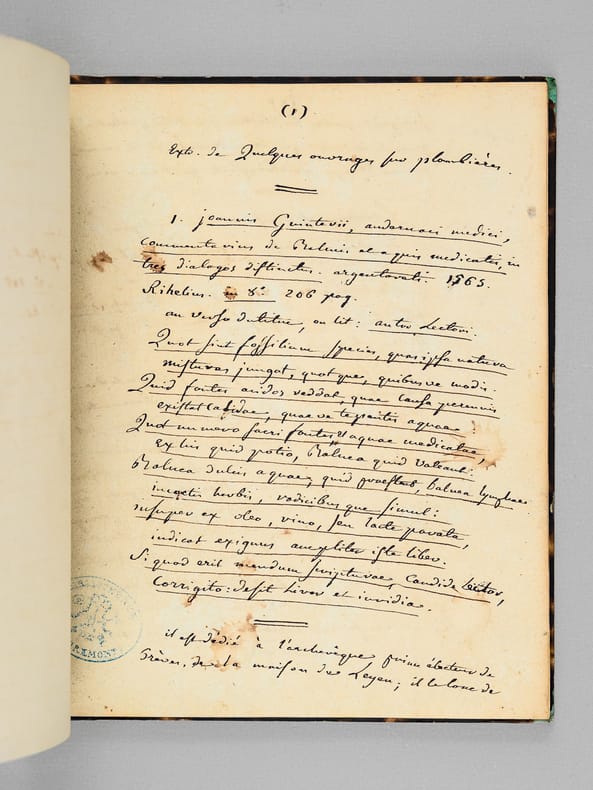 (1)
Extr. de Quelques ouvrages sur plombières.
1. Joannis Guinterii, andernaci medici,
commentarius de Balneis et aquis medicatis, in
tres dialogos distinctus. argentorati. 1565.
Rihelius. in 8.° 206 pag.
au verso du titre, on lit: autor Lectori.
Quot sint fossilium species, quas ipsa natura
misturas jungat, quotque, quibusve modis.
Quid fontes acidos reddat, quae causa perennis
existat calidae, quaeve tepentis aquae!
Quot numero sacri fontes & aquae medicatae,
Ex his quid potio, Balnea quid valeant.
Balnea dulcis aquae, quid praestent, balnea lymphae
incoctis herbis, radicibusque simul:
insuper ex oleo, vino, seu lacte parata,
indicat exiguus ampliter iste liber.
Si quod erit mendum scripturae, Candide Lector,
Corrigito: desit livor et invidia.
il est dédié à l'archevêque prince électeur de
Trèves, de la maison de Leyen; il le loue de
REMONT